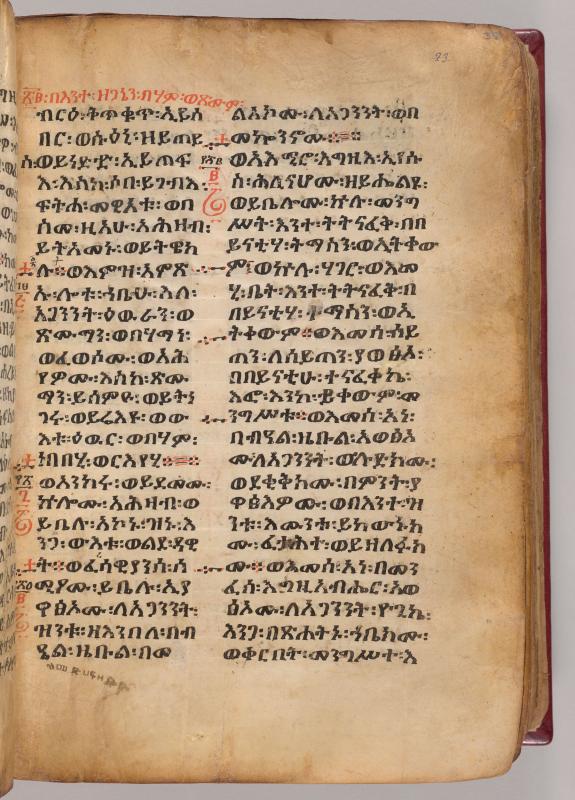 23
፳፪፡በእንተ፡ዘጋኔን፡በሃም፡ወጽሙም፡
ብርዕ፡ቅጥቁጥ፡ኢይሰ
በር፡ወሱዕኒ፡ዘይጠይ
ስ፡ኢይጠፍ
እ፡እስከ፡ሶበ፡ይገብእ፡
ፍትሐ፡መዊእቱ፡ወበ
ስመ፡ዚአሁ፡አሕዛብ፡
ይትአመኑ፡ወይትዌከ
ሉ፡ወእምዝ፡አምጽ
ኡ፡ሎቱ፡ኀቤሁ፡እለ፡
አጋንንት፡ዕዉራን፡ወ
ጽሙማን፡ወበሃማነ፡
ወፈወሶሙ፡ወአሕ
የዎሙ፡እስከ፡ጽሙ
ማን፡ይሰምዑ፡ወይትነ
ገሩ፡ወይሬእዩ፡ወው
እቱ፡ዕዉር፡ወበሃም፡
ነበበሂ፡ወርእየሂ፡
ወአንከሩ፡ወይደመሙ፡
ኵሎሙ፡አሕዛብ፡ወ
ይቤሉ፡አኮኑ፡ዝኑ፡እ
ንጋ፡ውእቱ፡ወልደ፡ዳዊ
ት፡ወፈሪሳውያንሰ፡ሰ
ሚዖሙ፡ይቤሉ፡ኢያ
ዋፅኦሙ፡ለአጋንንት፡
ዝንቱ፡ዘእንበለ፡በብ
ዔል፡ዜቡል፡በመ
ልአኮሙ፡ለአጋንንት፡ወበ
መኰንኖሙ፡
ወአእሚሮ፡እግዚእ፡ኢየሱ
ስ፡ሕሊናሆሙ፡ዘይሔልዩ፡
ወይቤሎሙ፡ኵሉ፡መንግ
ሥት፡እንተ፡ትትናፈቅ፡በበ
ይናቲሃ፡ትማስን፡ወኢትቀው
ም፡ወኵሉ፡ሃገር፡ወእመ
ሂ፡ቤት፡እንተ፡ትትናፈቅ፡በ
በይናቲሃ፡ትማስን፡ወኢ
ትቀውም፡ወእመሰ፡ሰይ
ጠን፡ለሰይጠን፡ያወፅኦ፡
በበይናቲሁ፡ተናፈቀኬ፡
እፎ፡እንከ፡ይቀውም፡መ
ንግሥቱ፡ወእመሰ፡አነ፡
በብዔል፡ዜቡል፡አወፅኦ
ሙ፡ለአጋንንት፡ውሉድክሙ፡
ወደቂቅክሙ፡በምንት፡ያ
ዋፅእዎሙ፡ወበእንተ፡ዝ
ንቱ፡እሙንቱ፡ይከውኑክ
ሙ፡ፈታሕተ፡ወይዘልፉክ
ሙ፡ወእመሰ፡አነ፡በመን
ፈሰ፡እግዚአብሔር፡አወ
ፅኦሙ፡ለአጋንንት፡ዮጊኬ፡
እንጋ፡በጽሐትኑ፡ኀቤክሙ፡
ወቀርበት፡መንግሥተ፡እ